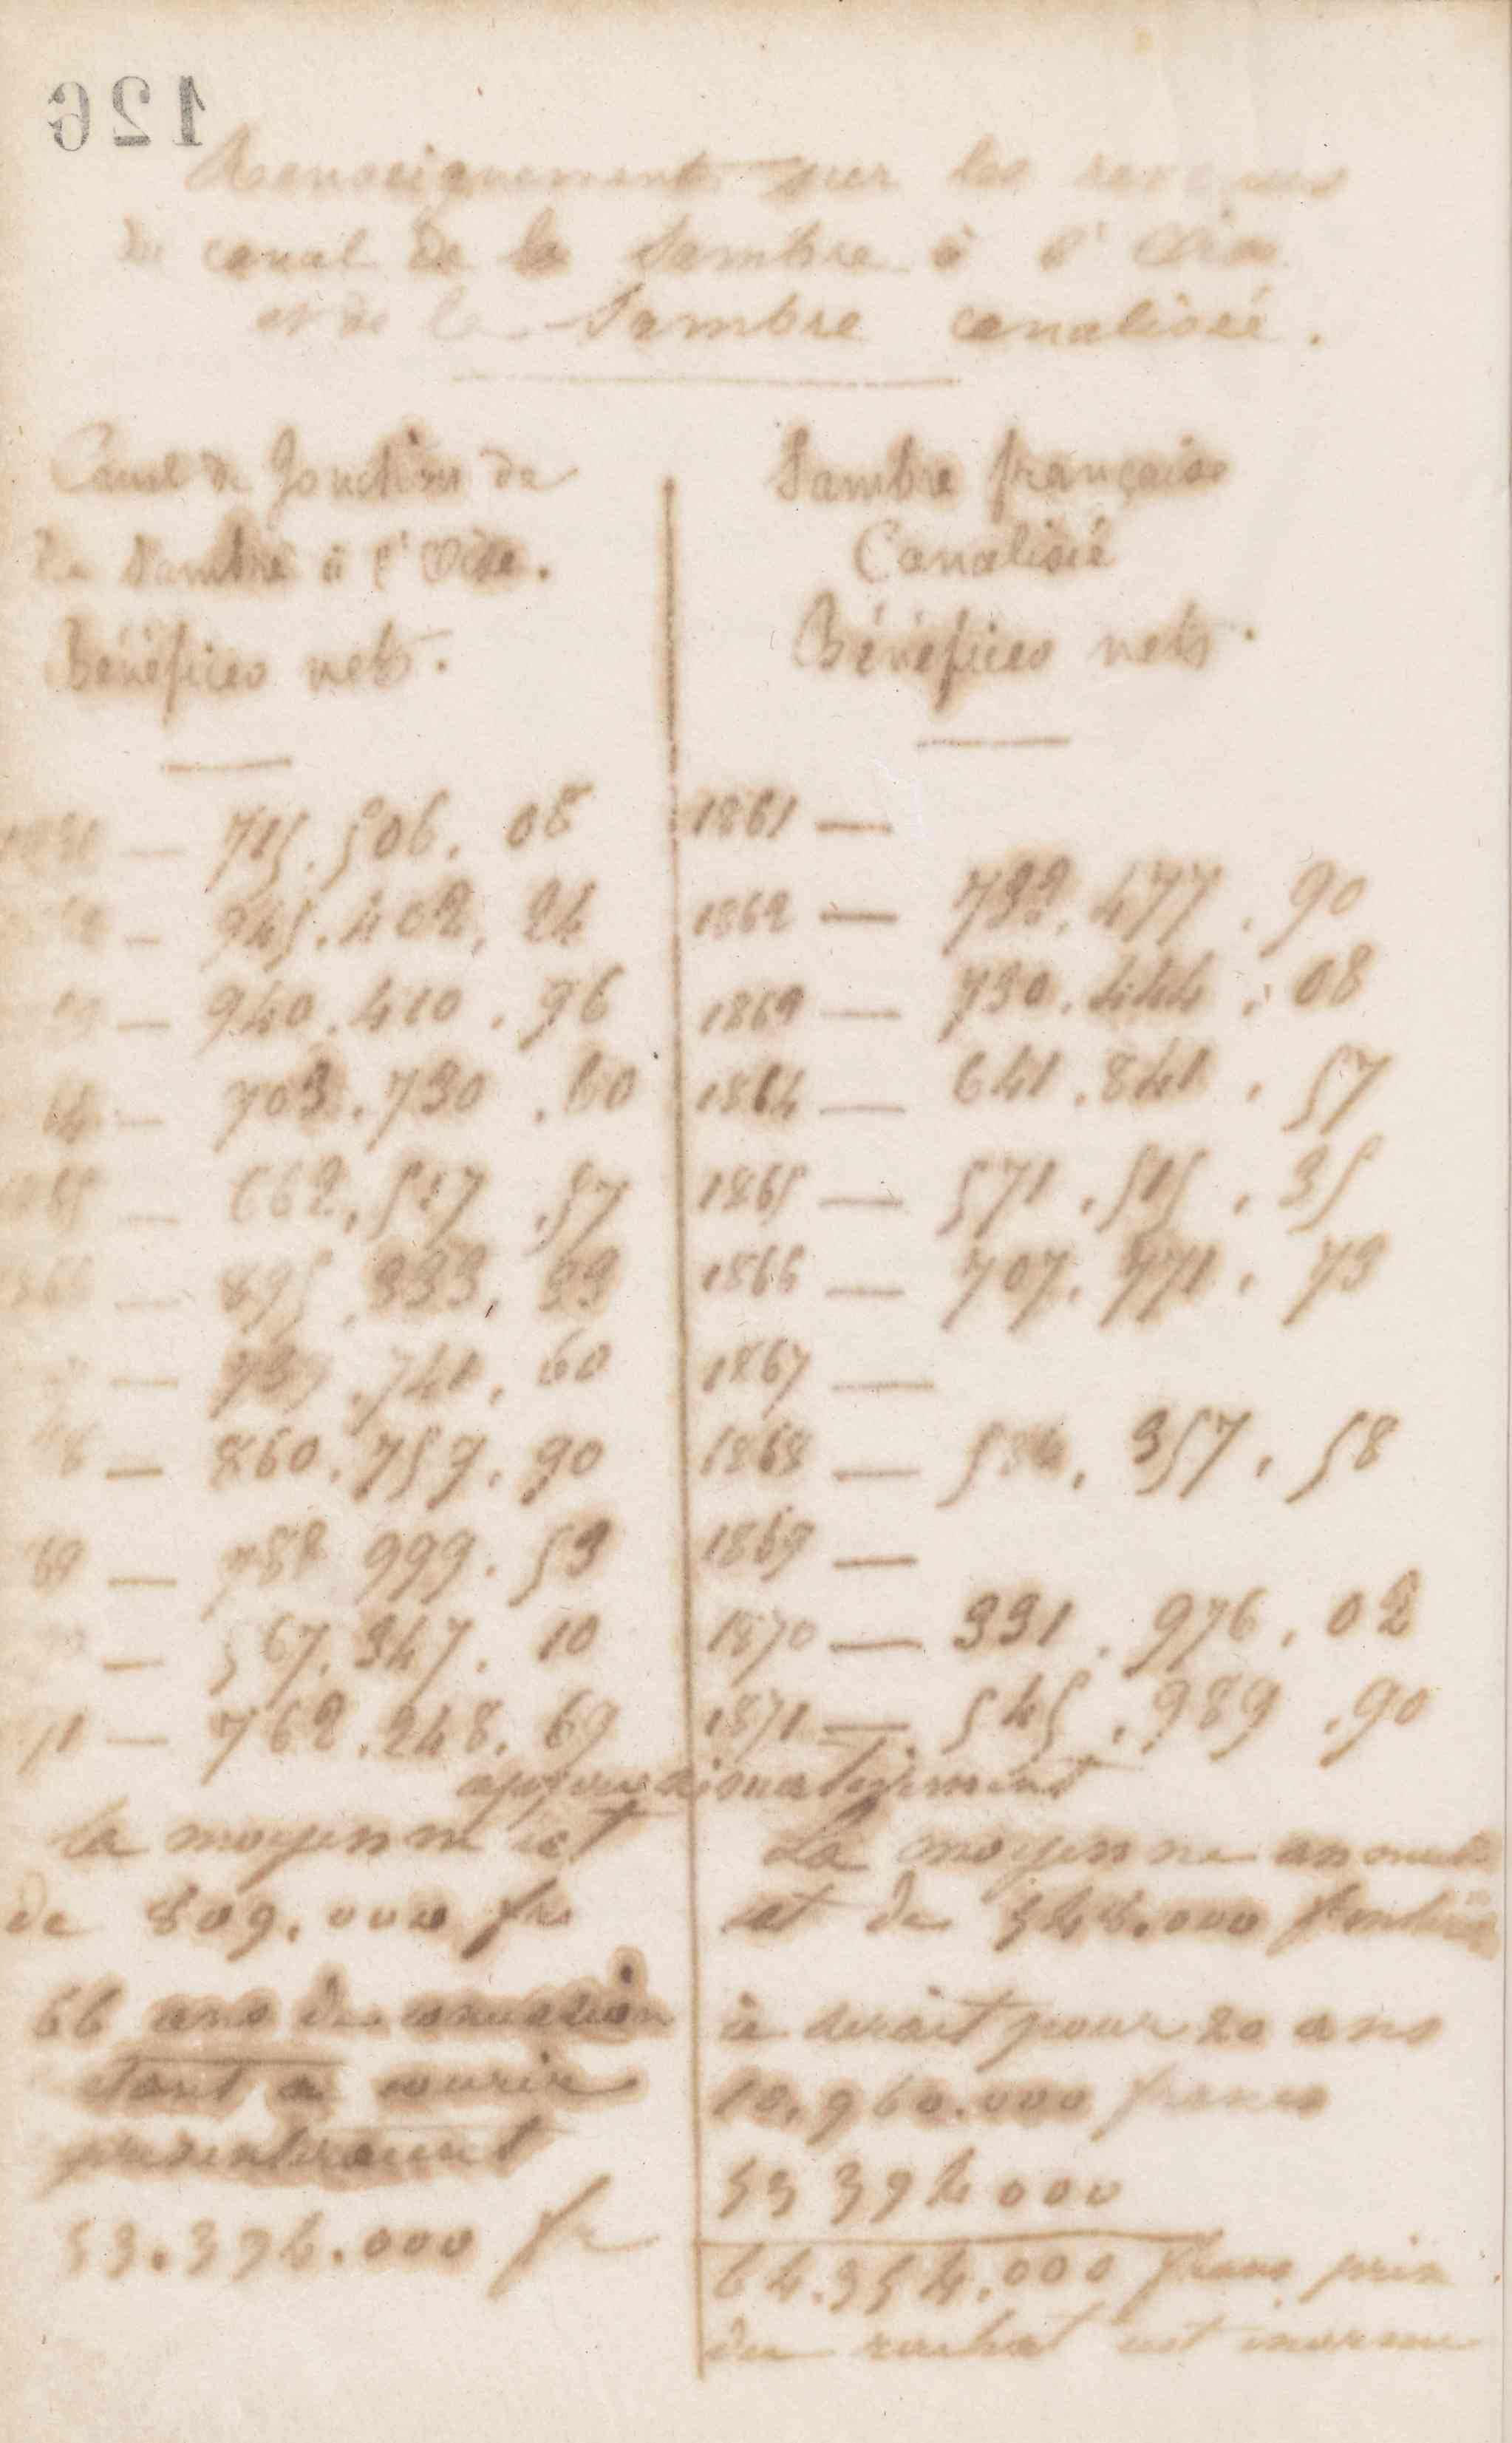 126
Renseignements sur les revenus
du canal de la Sambre à l'Oise
et de la Sambre canalisée.
Canal de Jonction de
la Sambre à l'Oise.
Bénéfices nets.
715.506.08
945.402.24
940.410.96
64 — 703.730.60
1865 — 662.517.57
1866 — 895.333.33
741.60
68 — 860.759.90
69 — 788 999.53
567.347.10
71 — 762.248.69
approximativement
la moyenne est
de 809.000 fr
66 ans de concession
étant à courir
présenteraient
53.394.000 fr
Sambre française
Canalisée
Bénéfices nets.
1861 —
1862 — 732.477.90
1863 — 730.444.08
1864 — 641.841.57
1865 — 571.515.35
1866 — 707.771.73
1867 —
1868 — 586.357.58
1869 —
1870 — 331.976.02
1871 — 545.989.90
La moyenne annuelle
est de 548.000
ce serait pour 20 ans
10.960.000 francs
53 394 000
64.354.000 francs prix
du rachat est inorme